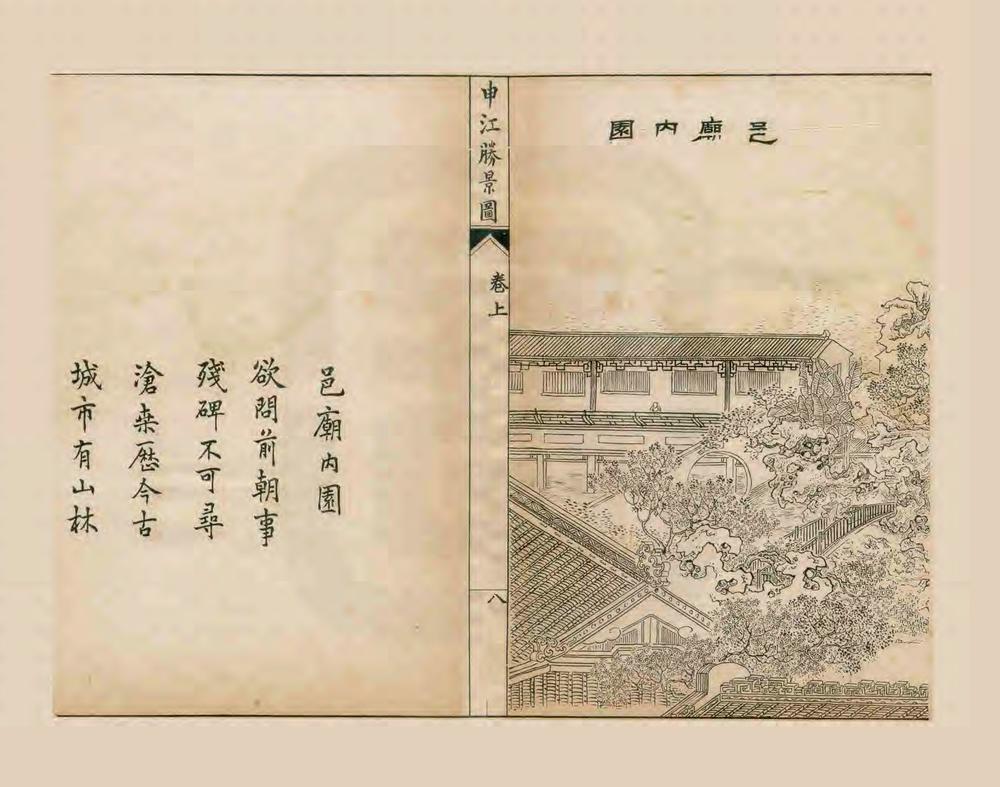 邑廟内園
申江勝景圖
卷上
八
邑廟内園
欲問前朝事
殘碑不可尋
滄桑歷今古
城市有山林